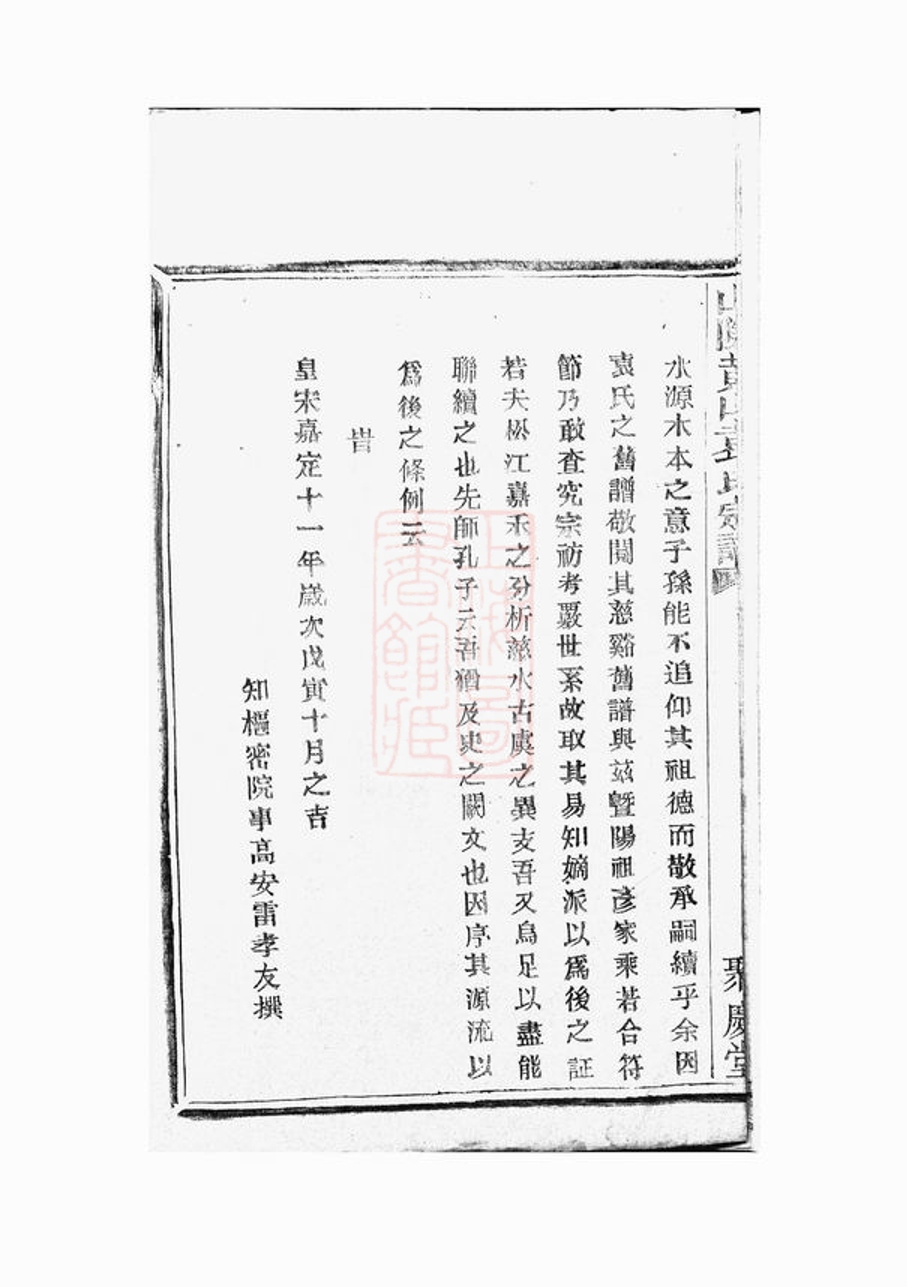 水源木本之意子孫能不追仰其祖德而敬承嗣續乎余因
袁氏之舊譜敬閱其慈谿舊譜與兹暨陽祖彥家乘若合符
節乃敢査究宗祊考覈世系故取其易知嫡派以爲後之証
若夫松江嘉禾之分析慈水古虞之異支吾又烏足以盡能
聯續之也先師孔子云吾猶及史之闕文也因序其源流以
爲後之條例云
旹
皇宋嘉定十一年歲次戊寅十月之吉
知樞密院事高安雷孝友撰
聚慶堂
上海圖書館藏